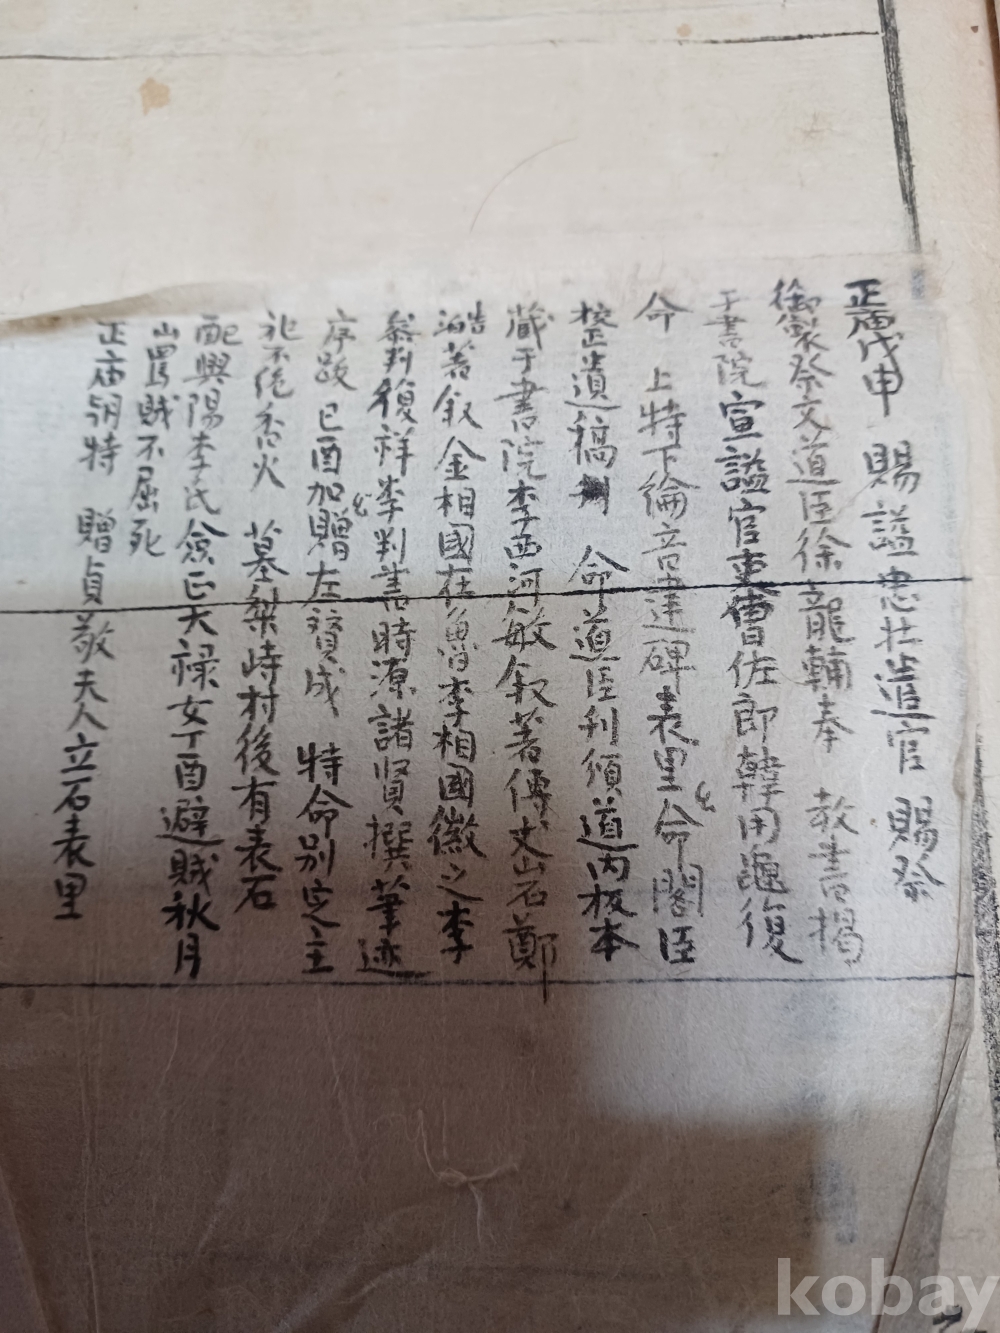 正廟戊申 賜謚忠壯遣官 賜祭
御製祭文道臣徐龍輔奉 教書揭
于書院宣謚官吏曹佐郎韓用龜復
命 上特下綸音建碑表里命閣臣
校正遺稿 命道臣刊頒道內板本
藏于書院李西河敏叙著傳丈山石鄭
澔著叙金相國在魯李相國徽之李
參判復祥李判書時源諸賢撰筆迹
序跋 己酉加贈左贊成 特命別定主
祀不絕香火 墓梨峙村後有表石
配興陽李氏僉正天祿女丁酉避賊秋月
山罵賊不屈死
正廟朝特 贈貞敬夫人立石表里
kobay